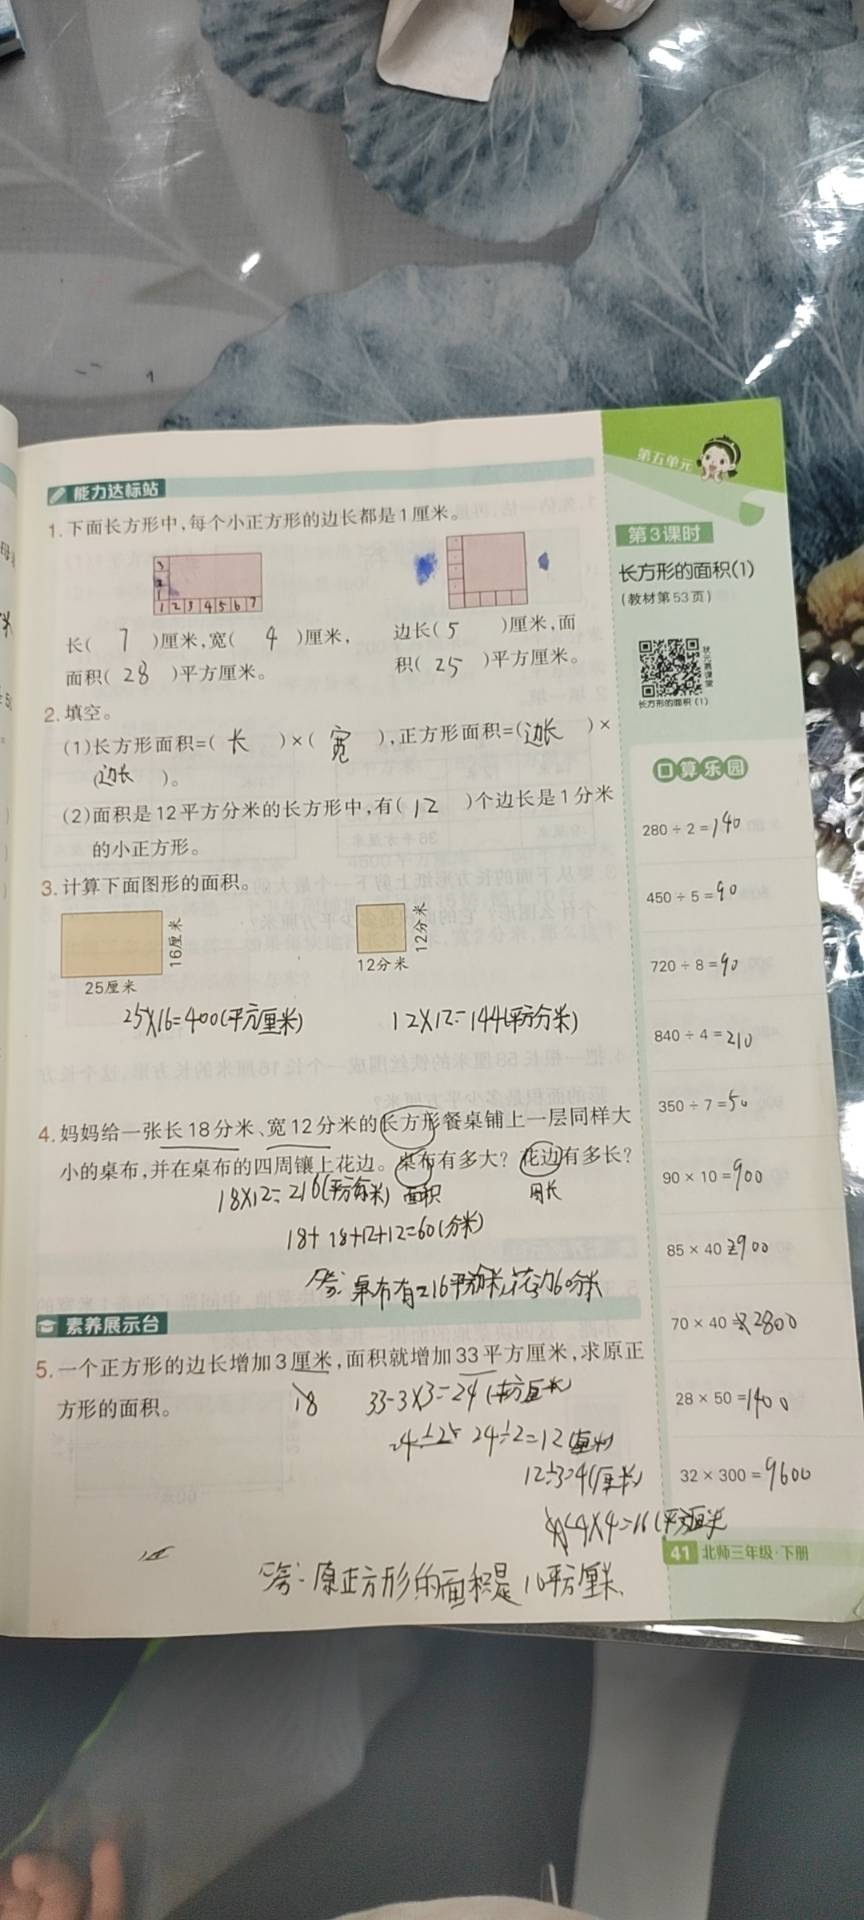 能力达标站
1.下面长方形中,每个小正方形的边长都是1厘米。
3
2
1
1 2 3 4 5 6 7
长( 7 )厘米,宽( 4 )厘米,
面积( 28 )平方厘米。
边长( 5 )厘米,面
积( 25 )平方厘米。
2.填空。
(1)长方形面积=( 长 )×( 宽 ),正方形面积=( 边长 )×
( 边长 )。
(2)面积是12平方分米的长方形中,有( 12 )个边长是1分米
的小正方形。
3.计算下面图形的面积。
16厘米
25厘米
12分米
12分米
25×16=400(平方厘米)
12×12=144(平方分米)
4.妈妈给一张长18分米、宽12分米的长方形餐桌铺上一层同样大
小的桌布,并在桌布的四周镶上花边。桌布有多大?花边有多长?
18×12=216(平方分米) 面积 周长
18+18+12+12=60(分米)
答:桌布有216平方分米,花边60分米
素养展示台
5.一个正方形的边长增加3厘米,面积就增加33平方厘米,求原正
方形的面积。
18
33-3×3=24(平方厘米)
24÷2=12(厘米)
12÷3=4(厘米)
4×4=16(平方厘米
答:原正方形的面积是16平方厘米.
第五单元
第3课时
长方形的面积(1)
(教材第53页)
状元善课堂
长方形的面积(1)
口算乐园
280÷2=140
450÷5=90
720÷8=90
840÷4=210
350÷7=50
90×10=900
85×40
70×40=2800
28×50=1400
32×300=9600
41 北师三年级·下册